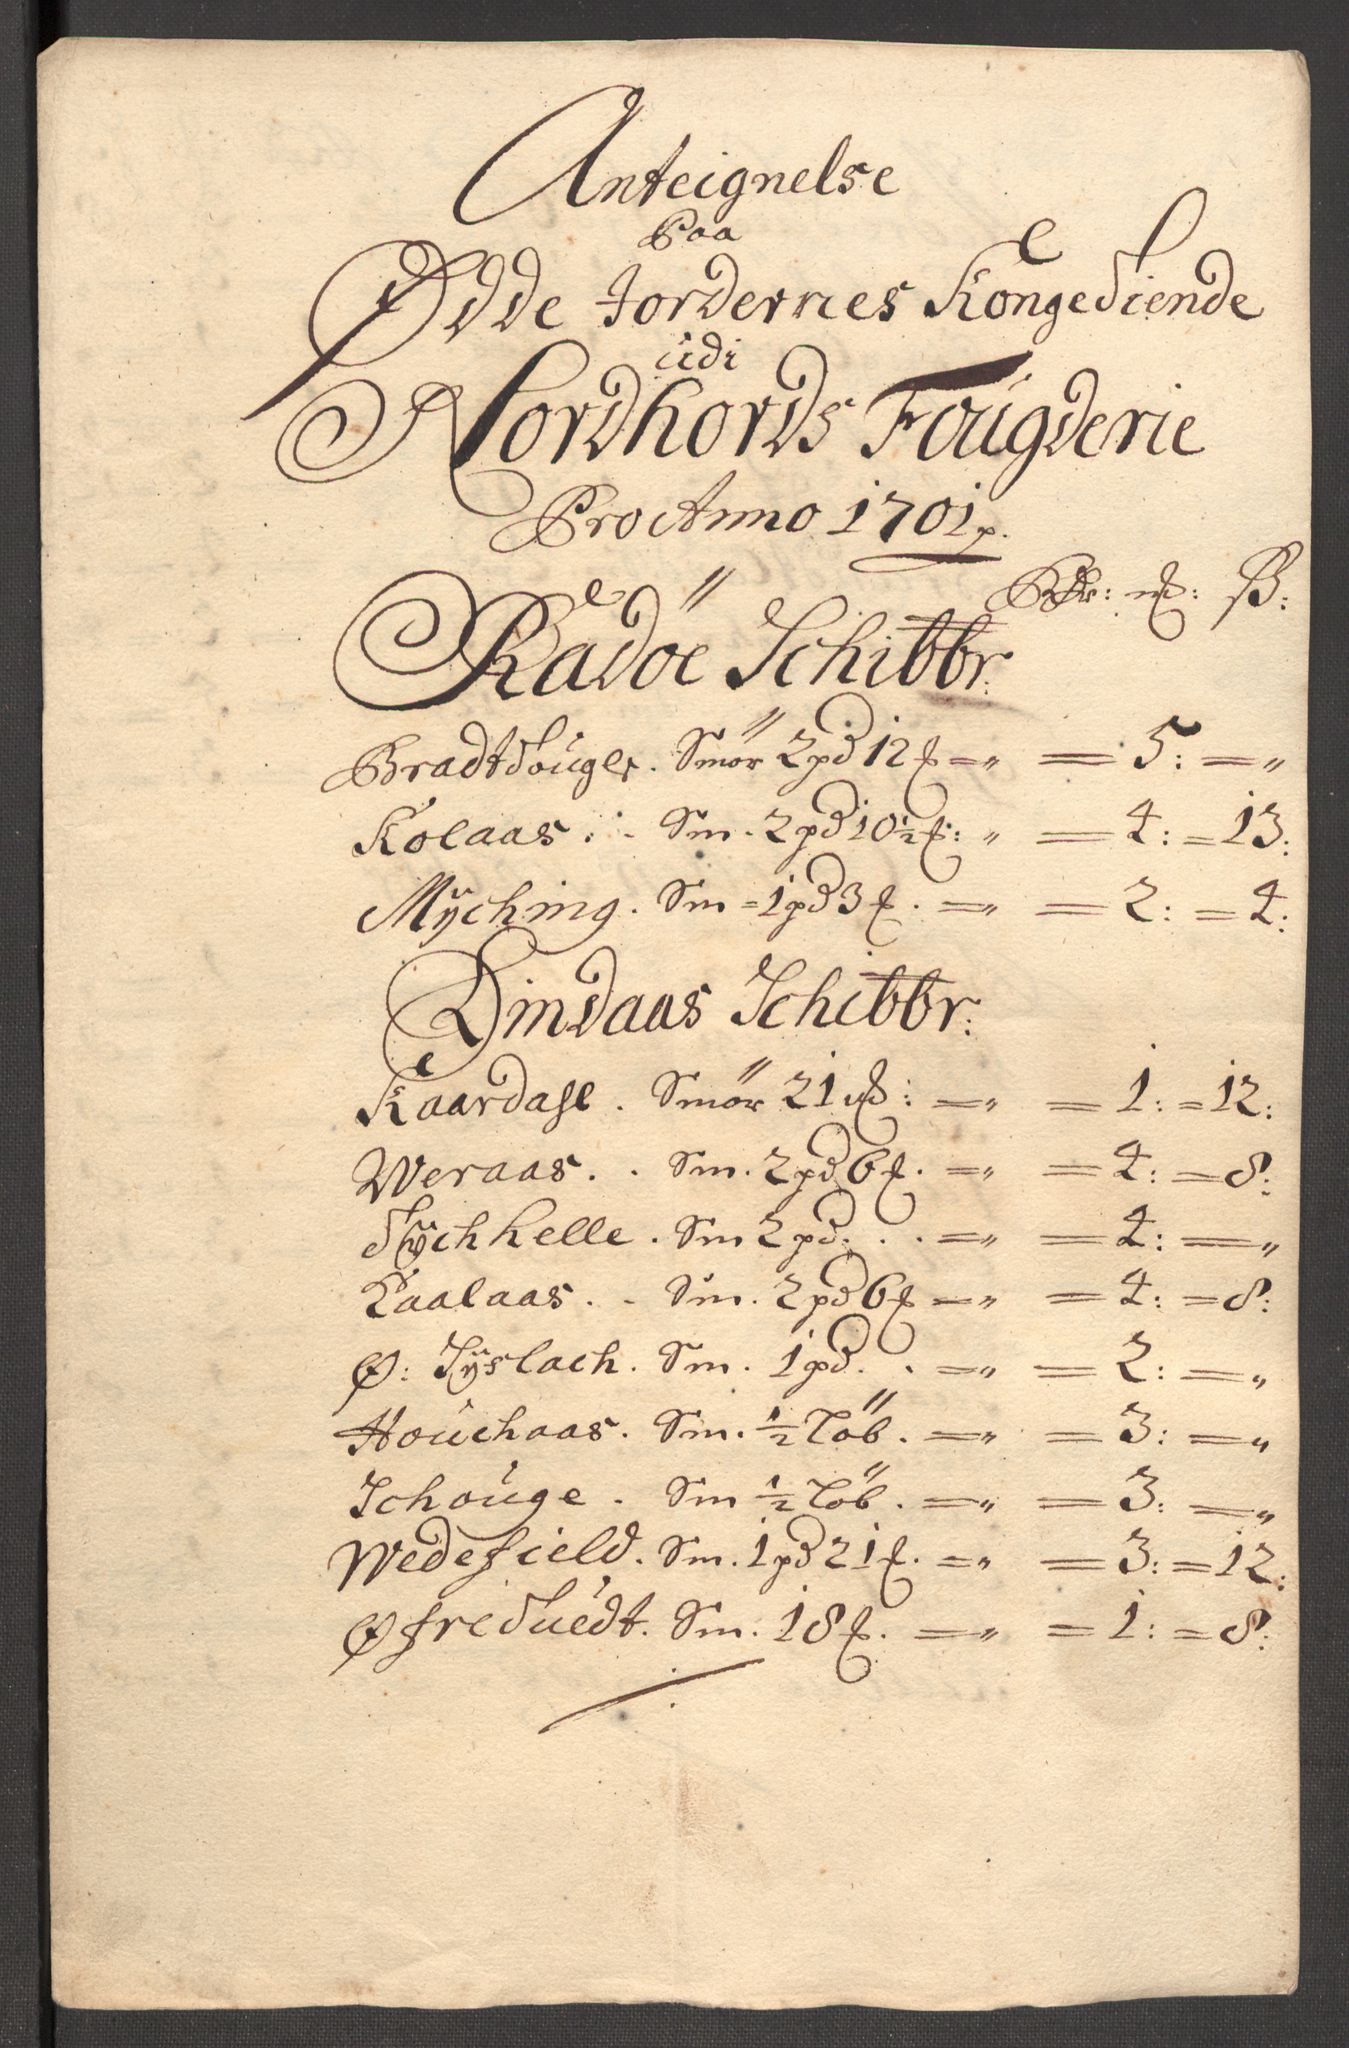 Anteignelse
Paa
Ødde Jordernes Kongetiende
udi
Nordhords Fougderie
Pro Anno 1701 p.
Rdr: mk: ß:
Radöe Schibbr:
Bradtouger. Smör 2 pd 12 mk = „ = 5: = „
Kolaas . . Sm. 2 pd 10½ mk: „ = 4: = 13:
Mÿching. Sm = 1 pd 3 mk. = „ = 2: = 4:
Lindaas Schibbr:
Kaardahl. Smör 21 mk: = „ = 1: = 12:
Weraas. . Sm. 2 pd 6 mk. = „ = 4: = 8:
Tÿchhelle. Sm 2 pd. . . = „ = 4: = „
Kaalaas. . Sm. 2 pd 6 mk = „ = 4: = 8:
Ø: Iÿslach. Sm. 1 pd. . = „ = 2: = „
Houchaas. Sm. ½ Löb. = „ = 3: = „
Schouge. Sm ½ Löb. = „ = 3: = „
Wedefield. Sm. 1 pd 21 mk. = „ = 3: = 12:
Øfretuedt. Sm. 18 mk. = „ = 1: = 8: